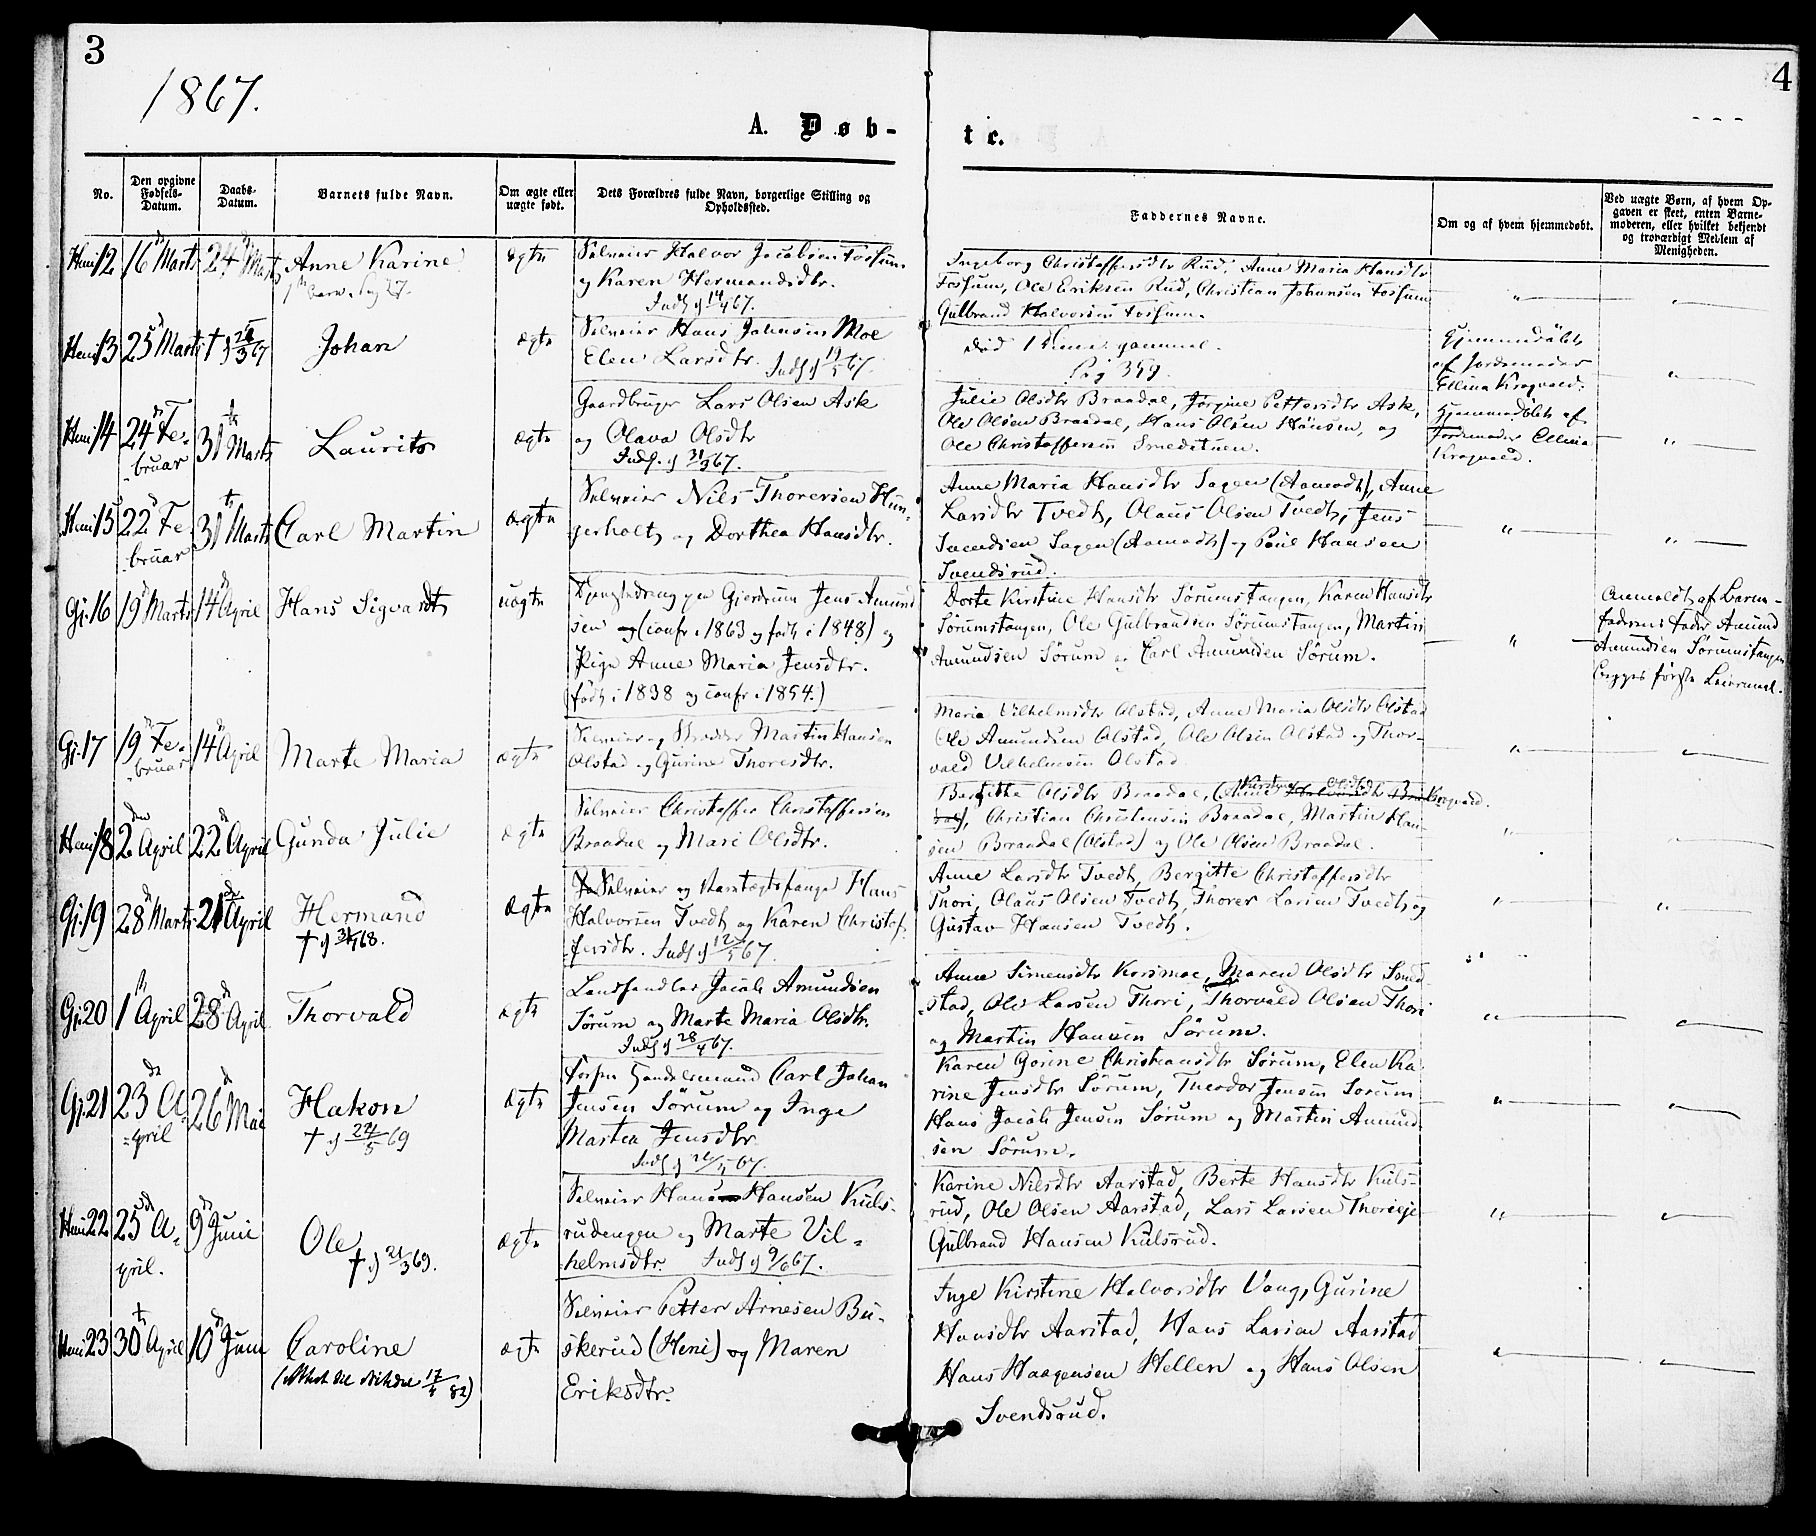 3
4
1867.
A. Døb-
te.
No.
Den opgivne Fødsels-Datum.
Daabs-Datum.
Barnets fulde Navn.
Om ægte eller uægte født.
Dets Forældres fulde Navn, borgerlige Stilling og Opholdssted.
Faddernes Navne.
Om og af hvem hjemmedøbt.
Ved uægte Børn, af hvem Op-
gaven er skeet, enten Barne-
moderen, eller hvilket bekjendt
og troværdigt Medlem af
Menigheden.
Heni 12
16 Marts
24 Marts
Anne Karine
ægte
Selveier Halvor Jacobsen Fossum
og Karen Hermandsdtr.
Ingeborg Christoffersdtr Rud, Anne Maria Hansdtr
Fossum, Ole Eriksen Rud, Christian Johansen Fossum
Gulbrand Halvorsen Fossum.
Heni 13
25 Marts
Johan
ægte
Selveier Hans Johnsen Moe
Elen Larsdtr.
død 1 time gammel.
Hjemmedøbt
af Jordemoder
Ellina Kragvald.
Heni 14
24 Fe-
bruar
31 Marts
Laurits
ægte
Gaardbruger Lars Olsen Ask
og Olava Olsdtr
Julie Olsdtr Braadal, Jørgine Pettersdtr Ask,
Ole Olsen Braadal, Hans Olsen Hånsen, og
Ole Christoffersen Smedstuen.
Hjemmedøbt af
Jordemoder Ellina
Kragvald.
Heni 15
22 Fe-
bruar
31 Marts
Carl Martin
ægte
Selveier Nils Thoresen Hun-
gerholt og Dorthea Hansdtr.
Anne Maria Hansdtr Sagen (Aamodt), Anne
Larsdtr Tvedt, Olaus Olsen Tvedt, Jens
Svendsen Sagen (Aamodt) og Paul Hansen
Svendsrud.
Gj. 16
19 Marts
14 April
Hans Sigvardt
uægte
Jens Amund
sen (confr. i 1863 og født i 1848) og
Pige Anne Maria Jensdtr.
(født i 1838 og confr. i 1854.)
Dorte Kirstine Hansdtr Sørumstangen, Karen Hansdtr
Sørumstangen, Ole Gulbrandsen Sørumstangen, Martin
Amundsen Sørum og Carl Amundsen Sørum.
Anmeldt af Barne-
faderens Fader Amund
Amundsen Sørumstangen
Begges første Leiermaal.
Gj. 17
19 Fe-
bruar
14 April
Marte Maria
ægte
Selveier og Skrædder Martin Hansen
Olstad og Gurine Thoresdtr.
Maria Vilhelmsdtr Olstad, Anne Maria Olsdtr Olstad
Ole Amundsen Olstad, Ole Olsen Olstad og Thor-
vald Vilhelmsen Olstad
Heni 18
2 April
22 April
Gunda Julie
ægte
Selveier Christoffer Christoffersen
Braadal og Mari Olsdtr.
Bergitte Olsdtr Braadal,
Christian Christensen Braadal, Martin Han-
sen Braadal (Olstad) og Ole Olsen Braadal.
Gj. 19
28 Marts
21 April
Hermand
ægte
Hans
Halvorsen Tvedt og Karen Christof-
fersdtr. Inds. 12/5 67.
Anne Larsdtr Tvedt, Bergitte Christoffersdtr
Thori, Olaus Olsen Tvedt, Thorer Larsen Tvedt og
Gustav Hansen Tvedt.
Gj. 20
1 April
28 April
Thorvald
ægte
Landhandler Jacob Amundsen
Sørum og Marte Maria Olsdtr.
Inds. 28/4 67.
Anne Simensdtr Korsmoe, Maren Olsdtr
stad, Ole Larsen Thori, Thorvald Olsen Thori
og Martin Hansen Sørum.
Gj. 21
23 A-
pril
26 Mai
Hakon
† 24/5 69
ægte
Carl Johan
Jensen Sørum og Inge
Martea Jensdtr.
Karen Gorine Christiansdtr Sørum, Elen Ka
rine Jensdtr Sørum, Theodor Jensen Sørum
Hans Jacob Jensen Sørum og Martin Amund-
sen Sørum.
Heni 22
25 A-
pril.
9 Juni
Ole
† 21/3 69.
ægte
Selveier Hans Hansen Kuls-
rudengen og Marte Vil-
helmsdtr. Inds. 9/6 67.
Karine Nilsdtr Aarstad, Berte Hansdtr Kuls-
rud, Ole Olsen Aarstad, Lars Larsen Thoreje
Gulbrand Hansen Kulsrud.
Heni 23
30 April
10 Juni
Caroline
ægte
Selveier Petter Arnesen Bu-
skerud (Heni) og Maren
Eriksdtr.
Inge Kirstine Halvorsdtr Vang, Gurine
Hansdtr Aarstad, Hans Larsen Aarstad
Hans Haagensen Hellen og Hans Olsen
Svendsrud.